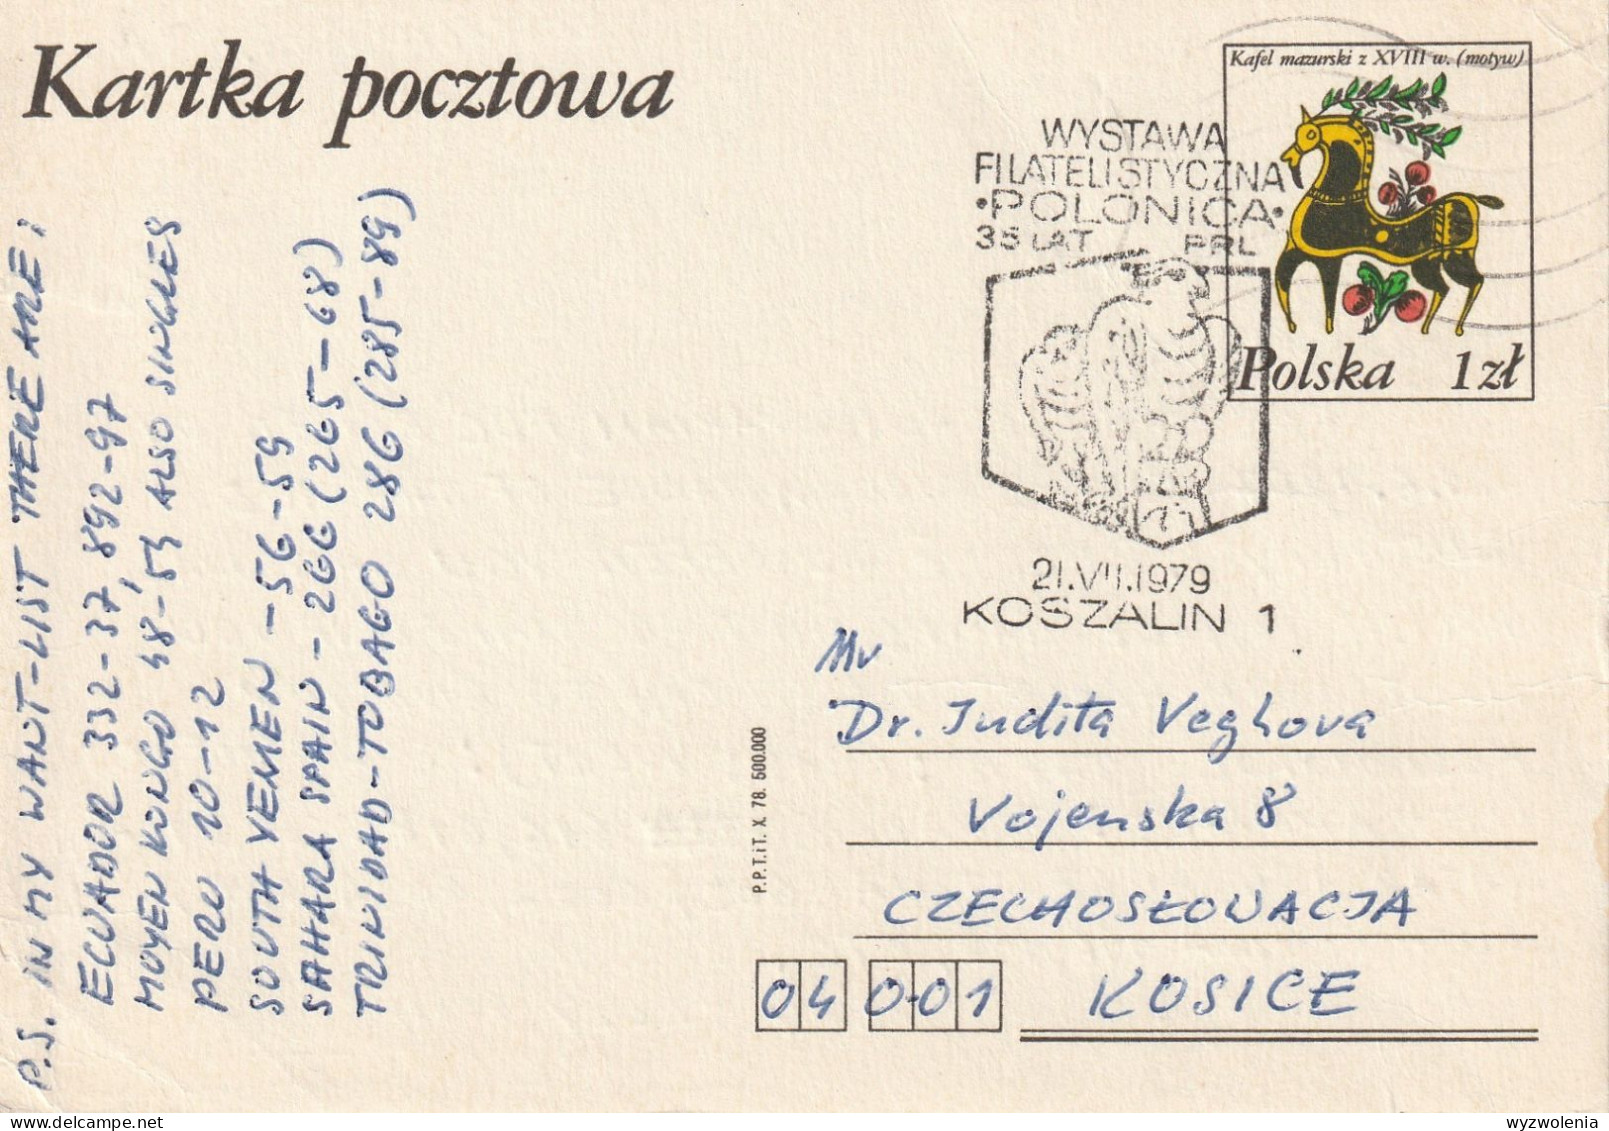 Kartka pocztowa
Kafel mazurski z XVIII w. (motyw)
Polska 1 zł
WYSTAWA
FILATELISTYCZNA
•POLONICA•
35 LAT PRL
21.VII.1979
KOSZALIN 1
P.S. IN MY WANT-LIST THERE ARE:
ECUADOR 332-37, 892-97
MOYEN KONGO 48-54 ALSO SINGLES
PERU 10-12
SOUTH YEMEN - 56-59
SAHARA SPAIN - 266 (265-68)
TRINIDAD-TOBAGO 286 (285-89)
P.P.T.iT. X 78. 500.000
Mr
Dr. Judita Veghova
Vojenska 8
CZECHOSŁOWACJA
04 0-01 KOSICE
wyzwolenia